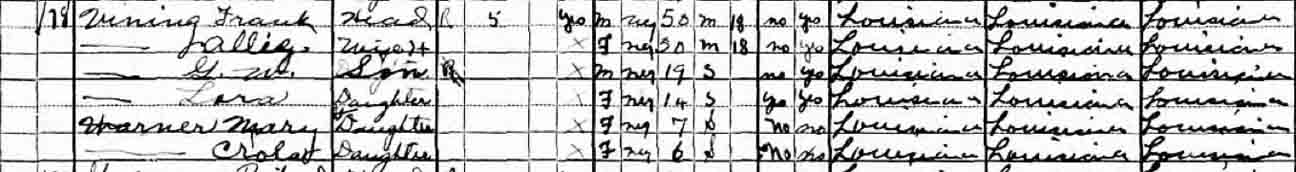 178 Vining Frank Head R 5 yes M neg 50 M 18 no yes Louisiana Louisiana Louisiana
— Wife H X F neg 50 M 18 no yes Louisiana Louisiana Louisiana
— G. W. Son X M neg 19 S no yes Louisiana Louisiana Louisiana
— Lora Daughter X F neg 14 S yes yes Louisiana Louisiana Louisiana
Warner Mary Daughter X F neg 7 S No no Louisiana Louisiana Louisiana
— Daughter X F neg 6 S No no Louisiana Louisiana Louisiana